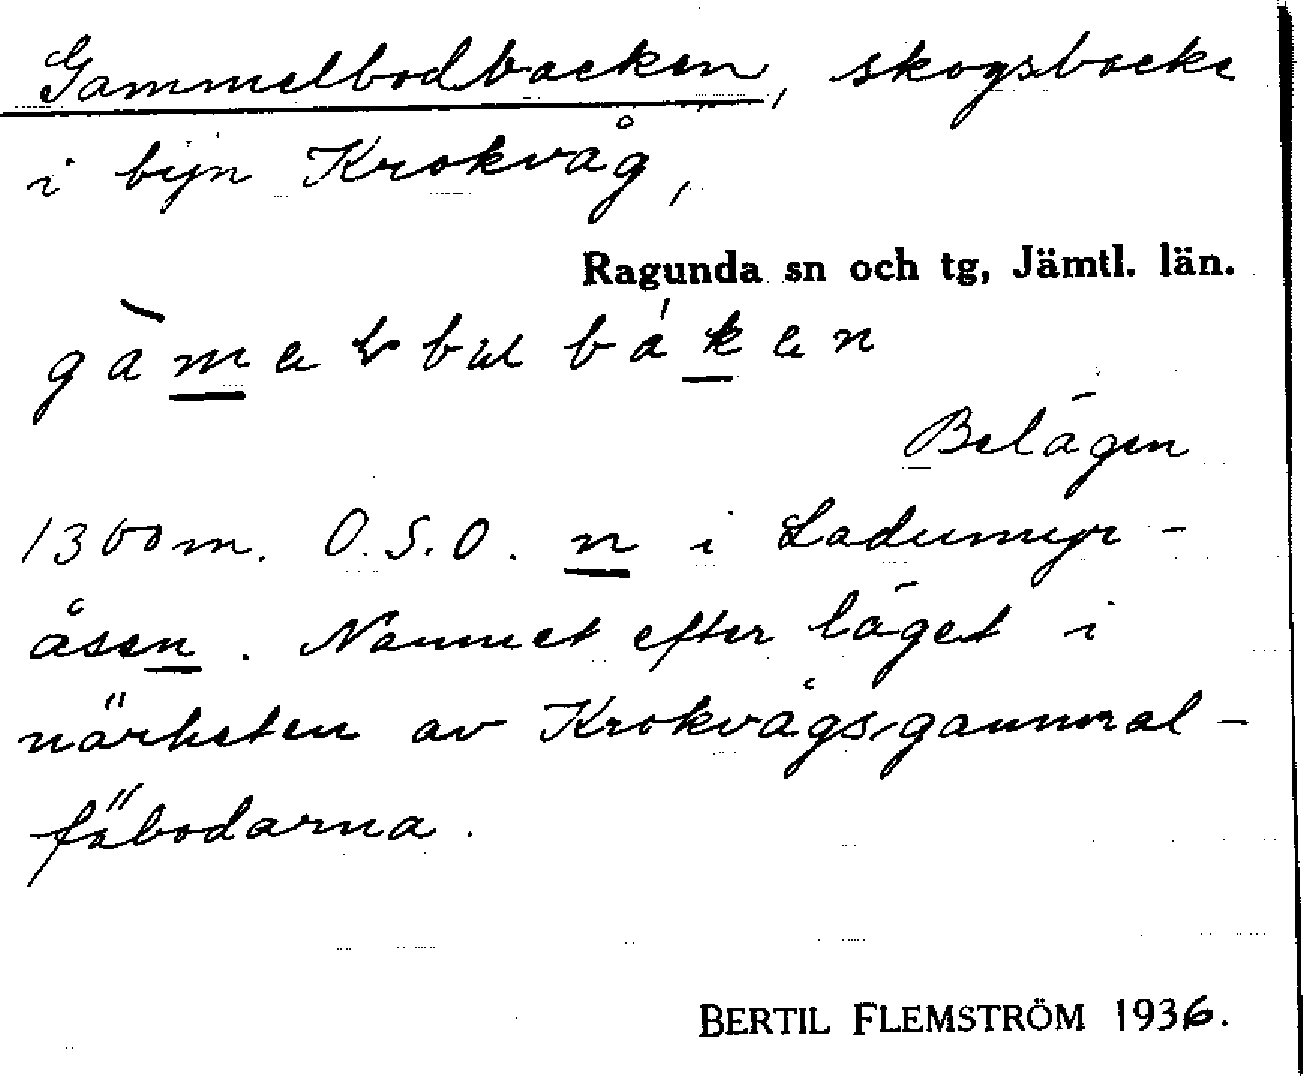 Gammelbodbacken, skogsbacke
i byn Krokvåg,
Ragunda sn och tg, Jämtl. län.
Belägen
1300 m. O.S.O. n i Ladumyr-
åsen. Namnet efter läget i
närheten av Krokvågsgammal-
fäbodarna.
BERTIL FLEMSTRÖM 1936.